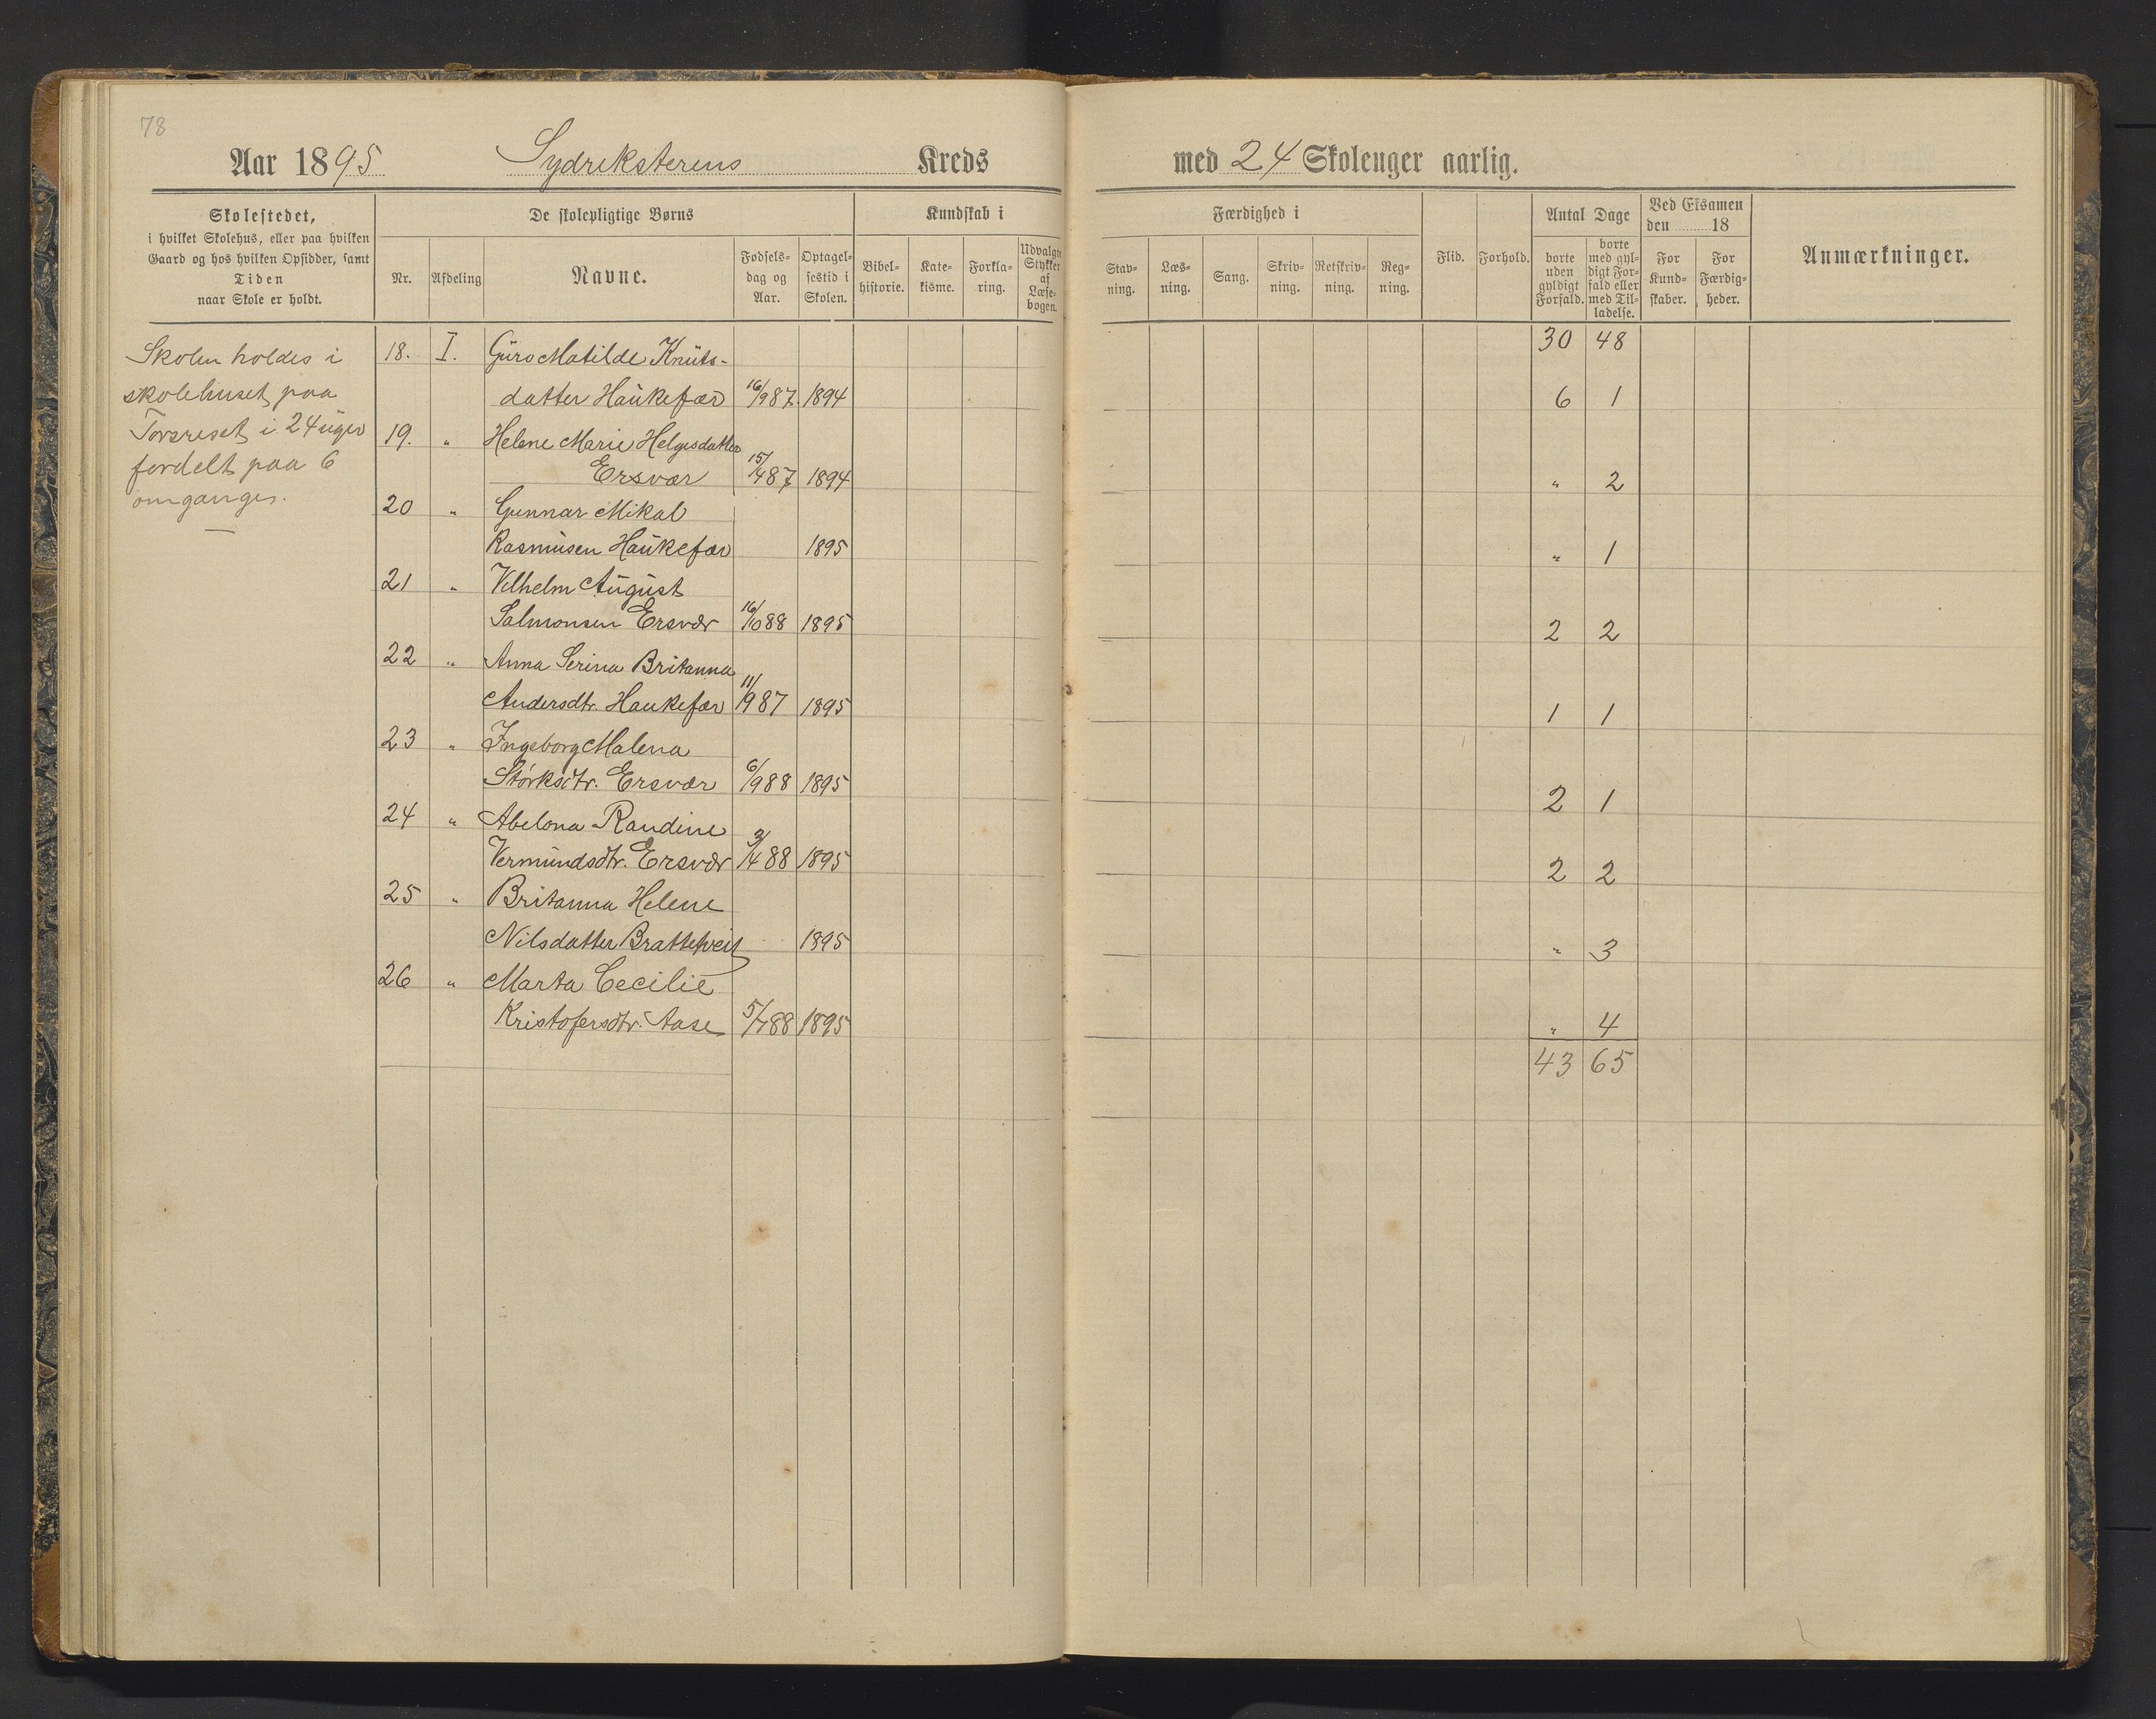 78
Aar 1895 Sydreksterens Kreds med 24 Skoleuger aarlig.
Skolestedet,
i hvilket Skolehus, eller paa hvilken
Gaard og hos hvilken Opsidder, samt
Tiden
naar Skole er holdt.
De skolepligtige Børns
Nr.
Afdeling
Navne.
Fødsels-
dag og
Aar.
Optagel-
sestid i
Skolen.
Kundskab i
Bibel-
historie.
Kate-
kisme.
Forkla-
ring.
Udvalgte
Stykker
af
Læse-
bogen.
Færdighed i
Stav-
ning.
Læs-
ning.
Sang.
Skriv-
ning.
Retskriv-
ning.
Reg-
ning.
Flid.
Forhold.
Antal Dage
borte
uden
gyldigt
Forfald.
borte
med gyl-
digt For-
fald eller
med Til-
ladelse.
Ved Eksamen
den 18
For
Kund-
skaber.
For
Færdig-
heder.
Anmærkninger.
Skolen holdes i
skolehuset paa
i 24 uger
fordelt paa 6
omganger.
30 48
18. I. Guro Matilde Knuts-
datter Haukefær 16/9 87. 1894 6 1
19. " Helene Marie Helgesdatter
Ersvær 15/4 87 1894 " 2
20 " Gunnar Mikal
Rasmusen Haukefær 1895 " 1
21 " Vilhelm August
Salmonsen Ersvær 16/10 88 1895 2 2
22 " Anna Serina Britanna
Andersdtr. Haukefær 11/9 87 1895 1 1
23 " Ingeborg Malena
Størksdtr. Ersvær 6/9 88 1895 2 1
24 " Abelona Randine
Vermundsdtr. Ersvær 3/4 88 1895 2 2
25 " Britanna Helene
Nilsdatter Brattetveit 1895 " 3
26 " Marta Cecilie
Kristofersdtr. Aase 5/7 88 1895 " 4
43 65